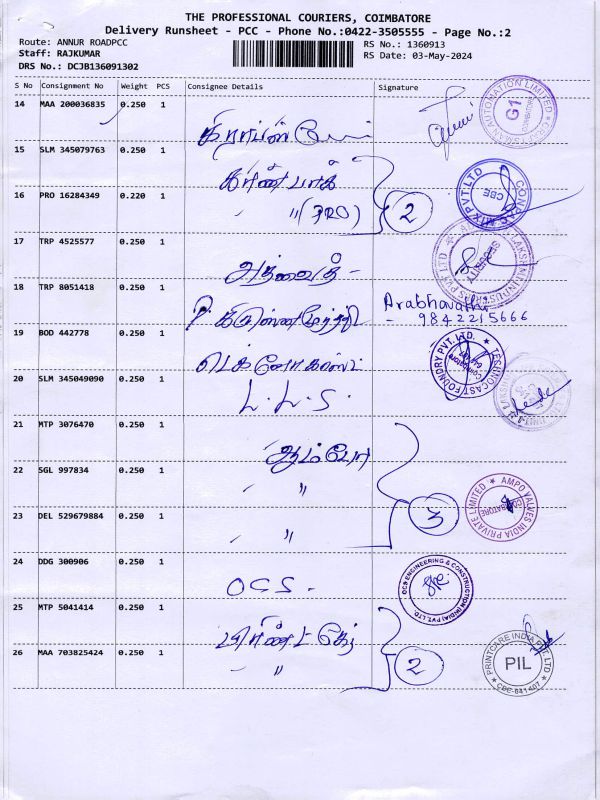 THE PROFESSIONAL COURIERS, COIMBATORE
Delivery Runsheet - PCC - Phone No.:0422-3505555 - Page No.:2
Route: ANNUR ROADPCC
RS No.: 1360913
Staff: RAJKUMAR
RS Date: 03-May-2024
DRS No.: DCJB136091302
S No Consignment No Weight PCS Consignee Details Signature
14 MAA 200036835 0.250 1
15 SLM 345079763 0.250 1
16 PRO 16284349 0.220 1 " (PRO) 2
17 TRP 4525577 0.250 1
18 TRP 8051418 0.250 1
Arabhavathi
- 9842215666
19 BOD 442778 0.250 1
TECHNOCAST FOUNDRY PVT. LTD.
20 SLM 345049090 0.250 1 L.L.S.
21 MTP 3076470 0.250 1 ஆம்போ
22 SGL 997834 0.250 1 "
AMPO VALVES INDIA PRIVATE LIMITED
COIMBATORE
23 DEL 529679884 0.250 1 " 3
24 DDG 300906 0.250 1 OCS -
OCS ENGINEERING & CONSTRUCTION (INDIA) PVT. LTD.
25 MTP 5041414 0.250 1 பிரிண்ட் கேர்
26 MAA 703825424 0.250 1 " 2
PRINTCARE INDIA PVT LTD
PIL
CBE-641 407